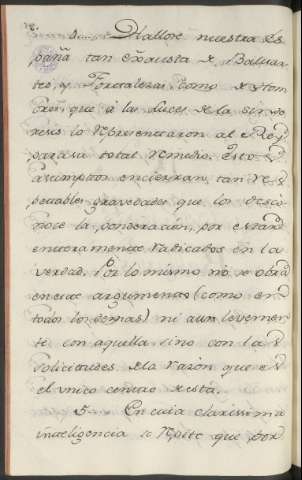 Hallose nuestra Es
paña tan exausta de Baluar
tes, y Fortalezas como
que à las luces de la sinde
resis lo representaron al Rey
para su total remedio. Estos
assumptos encierran tan res
petables gravedades que los desco
noce la ponderación, por estar
enteramente radicados en la
verdad. Por lo mismo no se obra
en este argumento (como en
todos los demas) ni aun levemen
te con aquella, sino con las
solicitudes de la razón que es
el unico
5 En cuia clarissima
inteligencia se repite que por